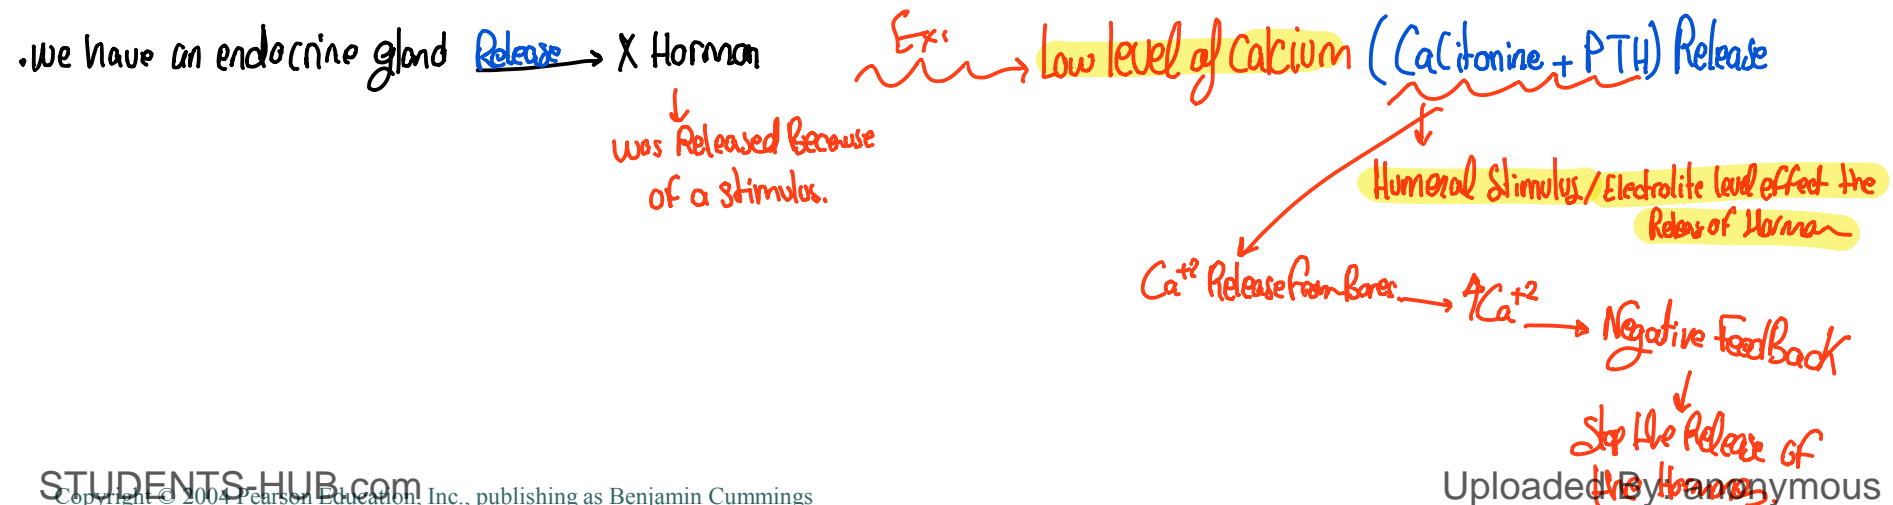 .we have an endocrine gland Release → X Hormon
was Released Because
of a stimulus.
Ex:
Low level of Calcium (Calcitonine + PTH) Release
Humeral Stimulus / Electrolite level effect the
Releas of Horman
Ca+2 Release from Bones → ↑Ca+2 → Negative FeedBack
Stop the Release of
the Hormones.
STUDENTS-HUB.com
Copyright © 2004 Pearson Education, Inc., publishing as Benjamin Cummings
Uploaded By: anonymous